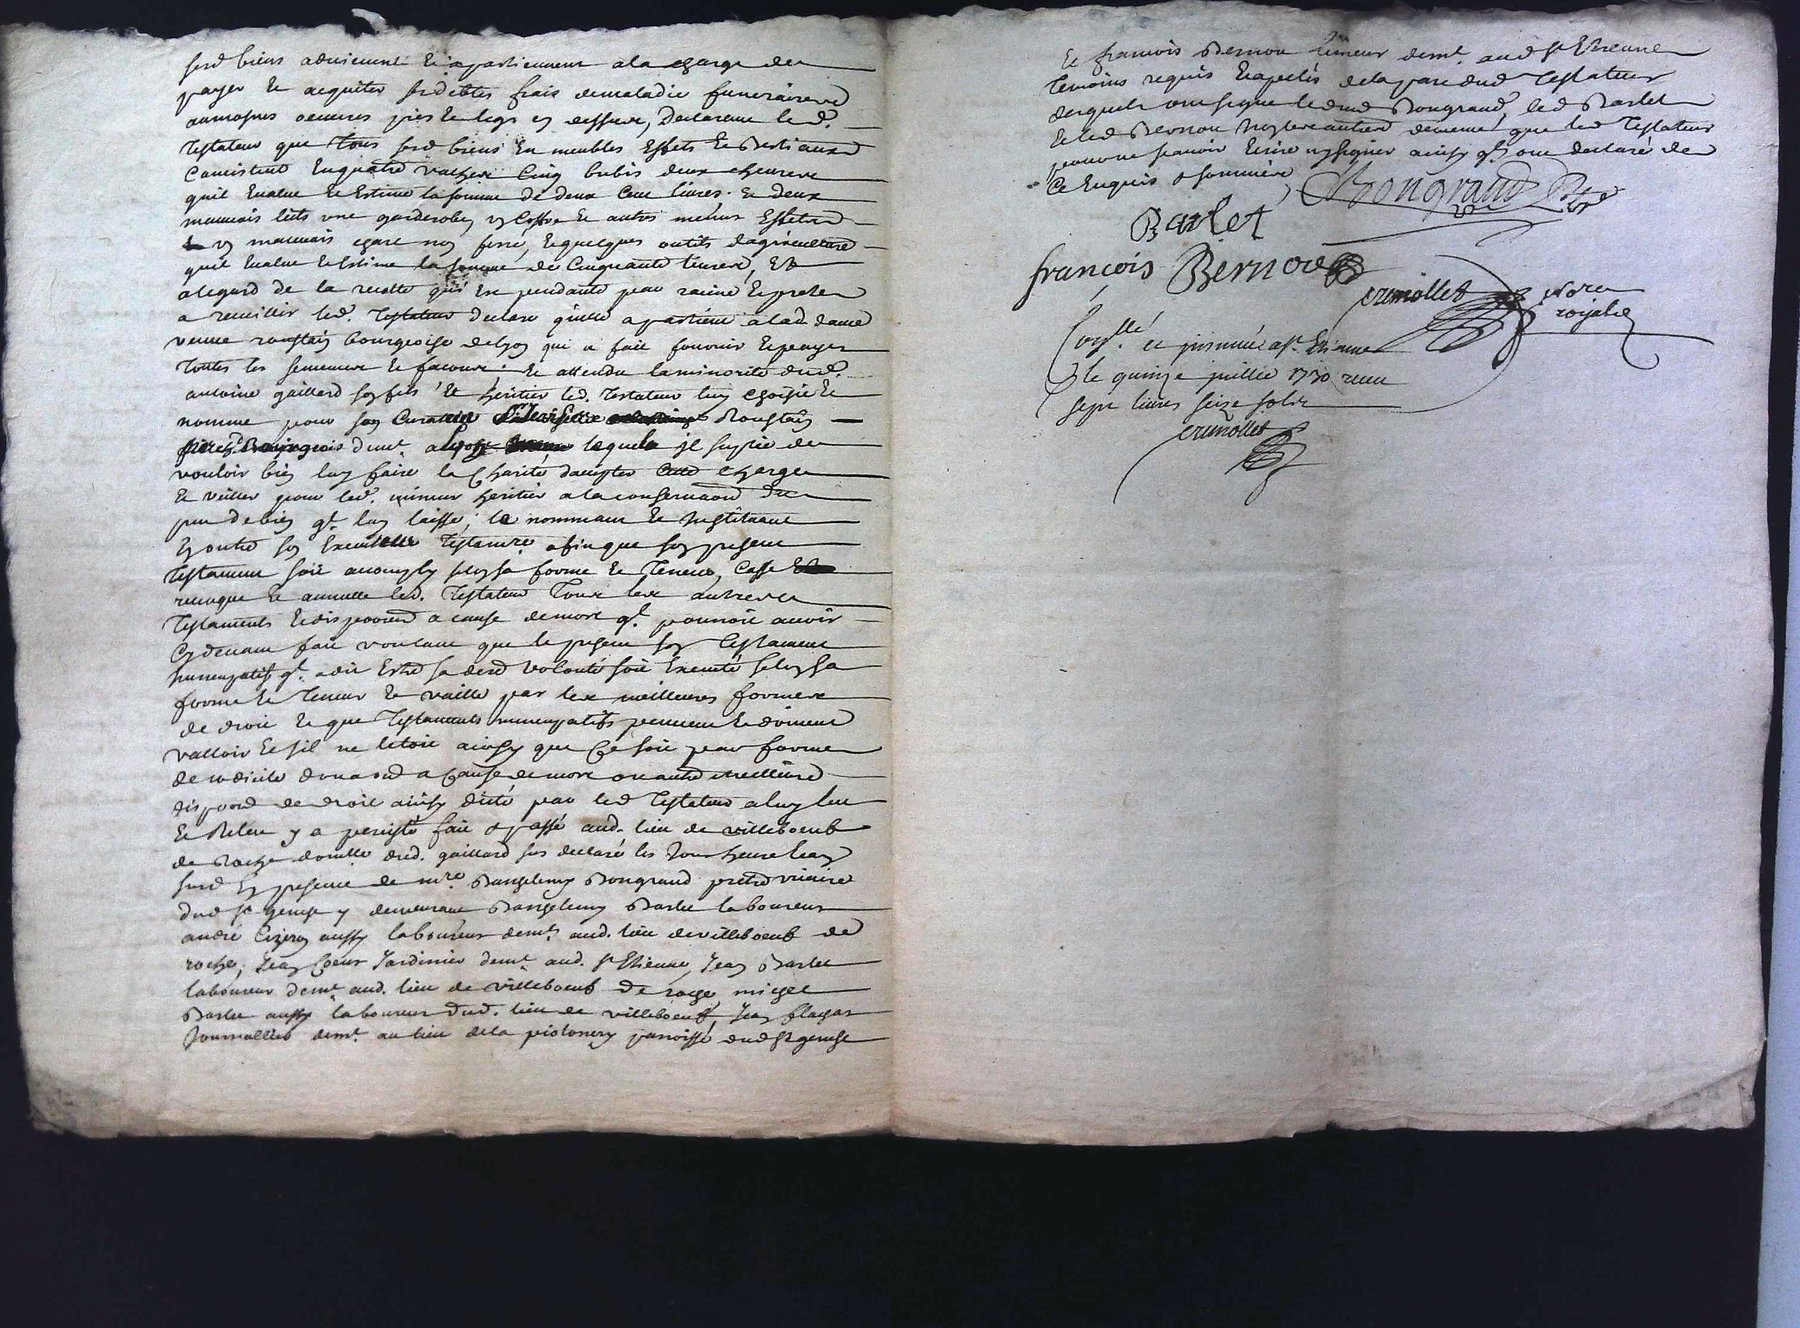 sesd biens advienent & apartiennent a la charge de
payer & acquiter sesdebtes frais demaladie funeraires
aumosnes oeuvres pies & legs cy dessus, Declarant led.
Testateur que Tous sesd biens En meubles Effets & Bestiaux
Consistent Enquatre vaches Cinq brebis deux cheures
quil Evalue & Estime la somme de deux Cent livres. & deux
mauvais lits une garderobe, un Coffre & autres menus Effets
un mauvais chare non ferré, & quelques outils dagriculture
quil Evalue & Estime la somme de Cinquante livres, Et
alegard de la recolte qui est pendante par racine & preste
a recuillir led. Testateur declare quelle apartient alad dame
veuve roustain bourgeoise delyon qui a fait fournir & payer
Toutes les semences & facons. & attendu laminorité dud.
antoine gaillard son fils & heritier led. Testateur luy choisie &
nomme pour son Roustain
Bourgeois demt. a laquelle il suplie de
vouloir bien luy faire la Charité daccepter Cette charge
& veiller pour led. mineur heritier a la conservaon du
peu de bien qt. luy laisse, la nommant & Instituant
En outre son Testamre. afinque son present
Testament soit accomply selon sa forme & Teneur, Casse
revoque & annulle led. Testateur Tous les autres
Testaments & dispoons a cause demort qt. pourroit avoir
Cy devant fait voulant que le present son Testament
nuncupatif qt. a dit Estre sa dere volonté soit Executé selon sa
forme & Teneur & vaille par les meilleures formes
de droit & que Testaments nuncupatifs peuvent & doivent
valloir & sil ne letoit ainsy que Ce soit par forme
de codicile donaon a Cause demort ou autre meilleure
dispoon de droit ainsy dicté par led Testateur a luy leu
& Releu y a persisté fait & passé aud. lieu de villeboeuf
de Roche domille dud. gaillard sus declaré les Jour heure & an
susd En presence de mre. Barthelemy Bongrand pretre vicaire
dud st genest y demeurant Barthelemy Barlet laboureur
andré Cizeron aussy laboureur demt. aud. lieu devilleboeuf de
roche, Jean Coeur Jardinier demt. aud. st Etienne, Jean Barlet
laboureur demt. aud. lieu de villeboeuf de roche, michel
Barlet aussy laboureur dud. lieu de villeboeuf, Jean
Journallier demt. au lieu dela paroisse dud st genest
& francois Bernou limeur demt. aud st Etienne
Temoins requis & apellés delapart dud Testateur
desquels ont signé led sr Bongrand, led Barlet
& led Bernou non les autres dememe que led Testateur
pour ne scavoir Ecrire ny signer ainsy qt. ont declaré de
Ce Enquis & sommés
Bongrand ptre
Barlet
françois Bernou
crimollet nore
royale
Conllé et insinué a st. Etienne
le quinze juillet 1730 receu
sept livres seize sols
crimollet